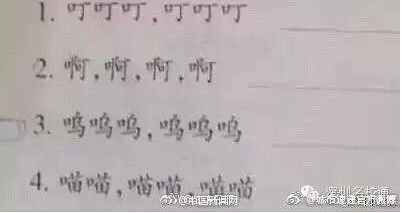 1. 叮叮叮,叮叮叮
2. 啊,啊,啊,啊
3. 呜呜呜,呜呜呜
4. 喵喵,喵喵,喵喵
深圳名校通
@中国新闻网